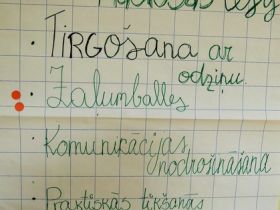 • TIRGOŠANA ar
odziņu.
• Zaļumballes
• Komunikācijas
nodrošināšana
• Praktiskās tikšanās